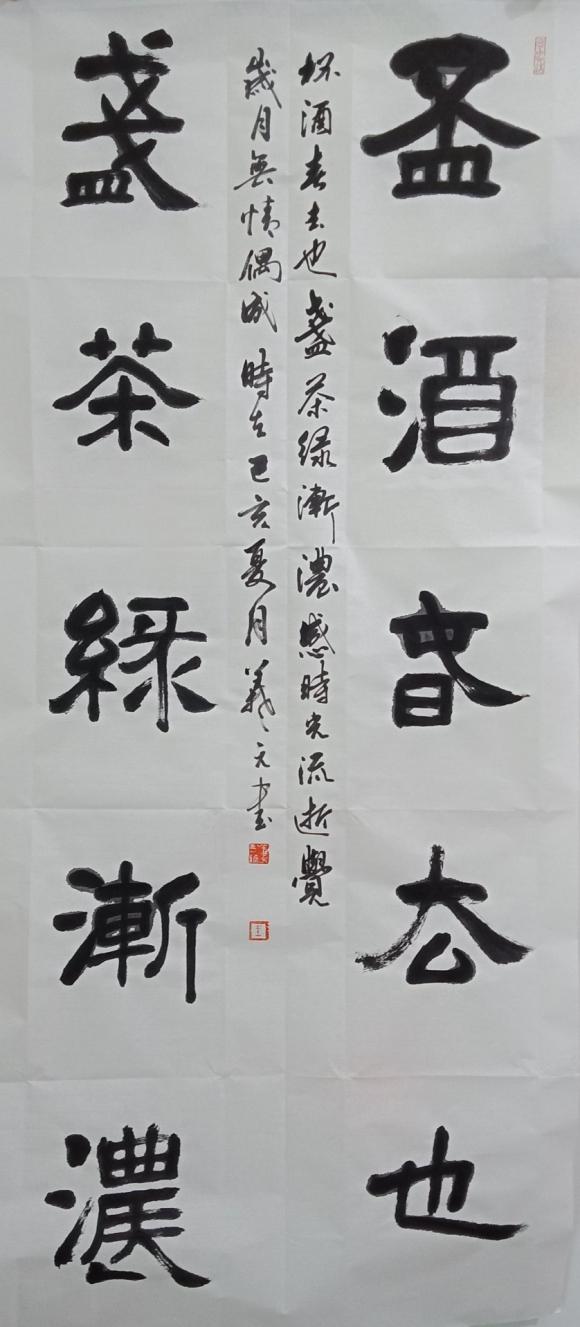 盃酒春去也
盞茶綠漸濃
杯酒春去也盞茶綠漸濃感時光流逝覺
歲月無情偶成時在己亥夏月義元書